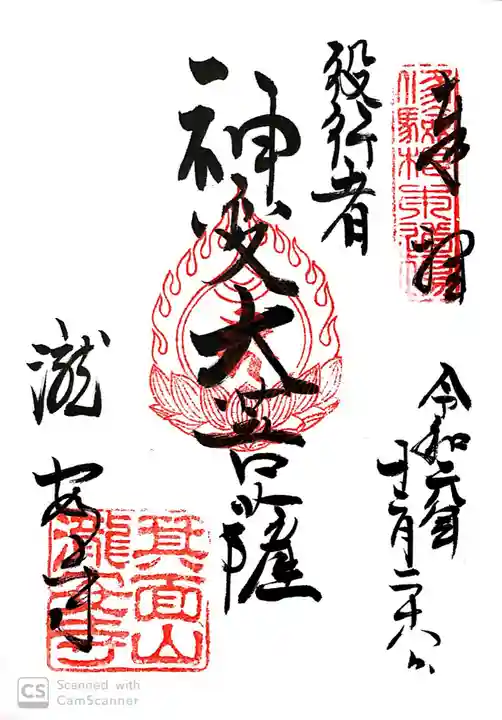 奉拝
役行者
神変大菩薩
瀧安寺
令和元年
十二月二十八日
箕面山
瀧安寺
CS Scanned with
CamScanner